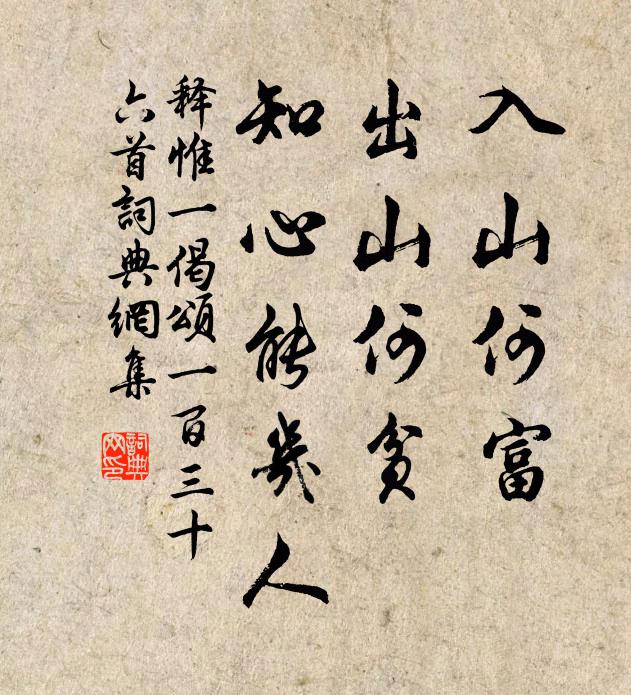 入山何富
出山何貧
知心能幾人
释惟一偈頌一百三十
六首詞典網集
詞典
网印